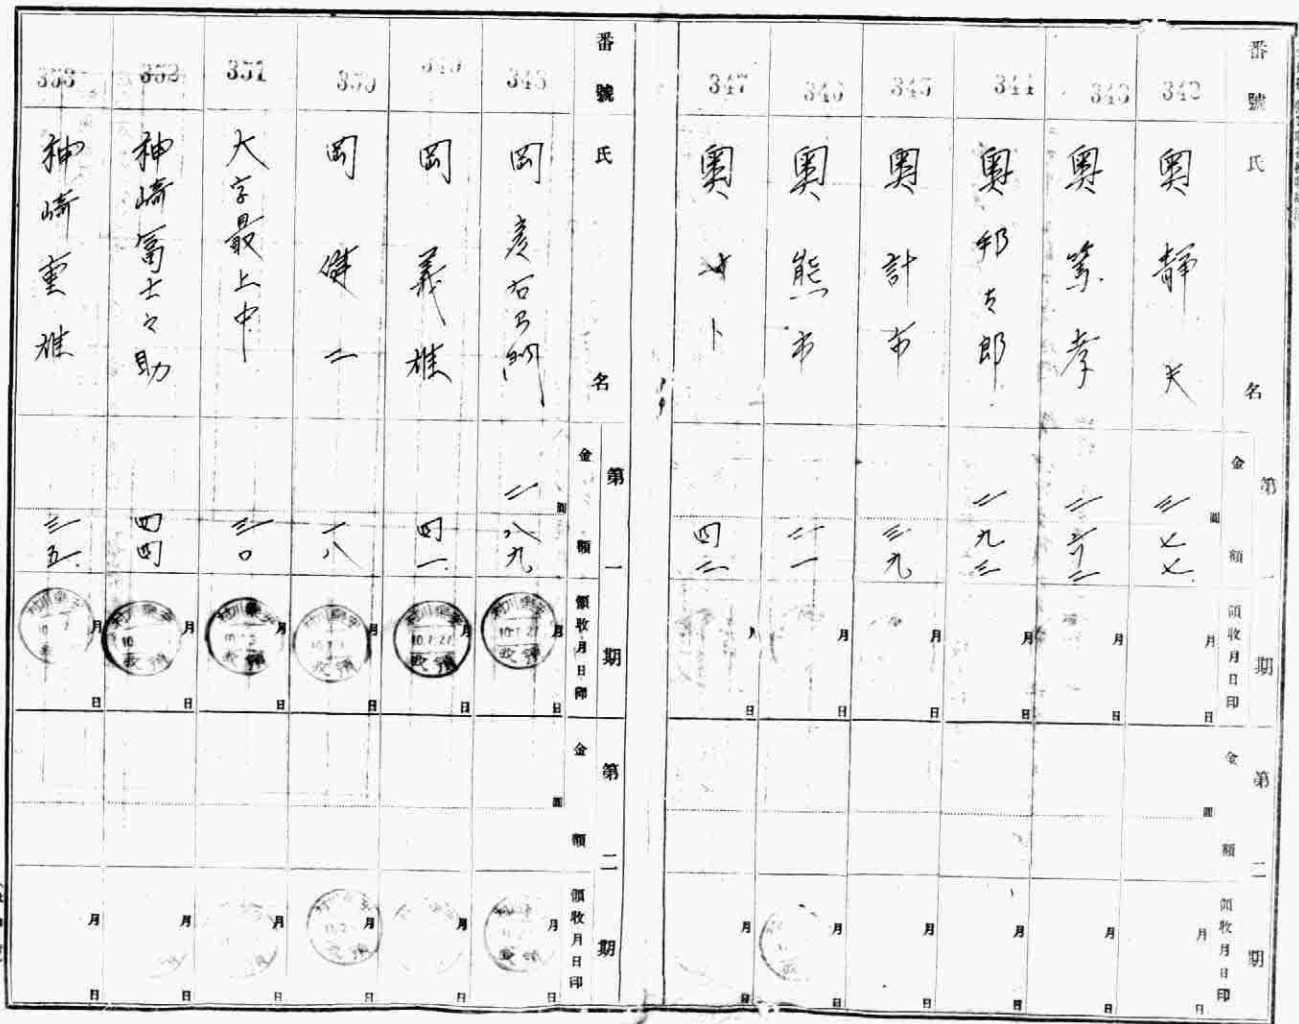 番號
氏名
第一期
金額
圓
領收月日印
第二期
金額
圓
領收月日印
342
奥静夫
三七七
月
日
月
日
343
奥篤孝
二六二
月
日
月
日
344
奥邦太郎
二九三
月
日
月
日
345
奥計市
三九
月
日
月
日
346
奥熊市
二一
月
日
月
日
347
奥
四二
月
日
月
日
番號
氏名
第一期
金額
圓
領收月日印
第二期
金額
圓
領收月日印
348
岡彦右衛門
二八九
10.7.27
月
日
月
日
349
岡義雄
四一
10.7.27
月
日
月
日
350
岡健二
一八
月
日
月
日
351
大字最上中
三〇
月
日
月
日
352
神崎富士之助
四四
月
日
月
日
353
神崎重雄
三五
月
日
月
日